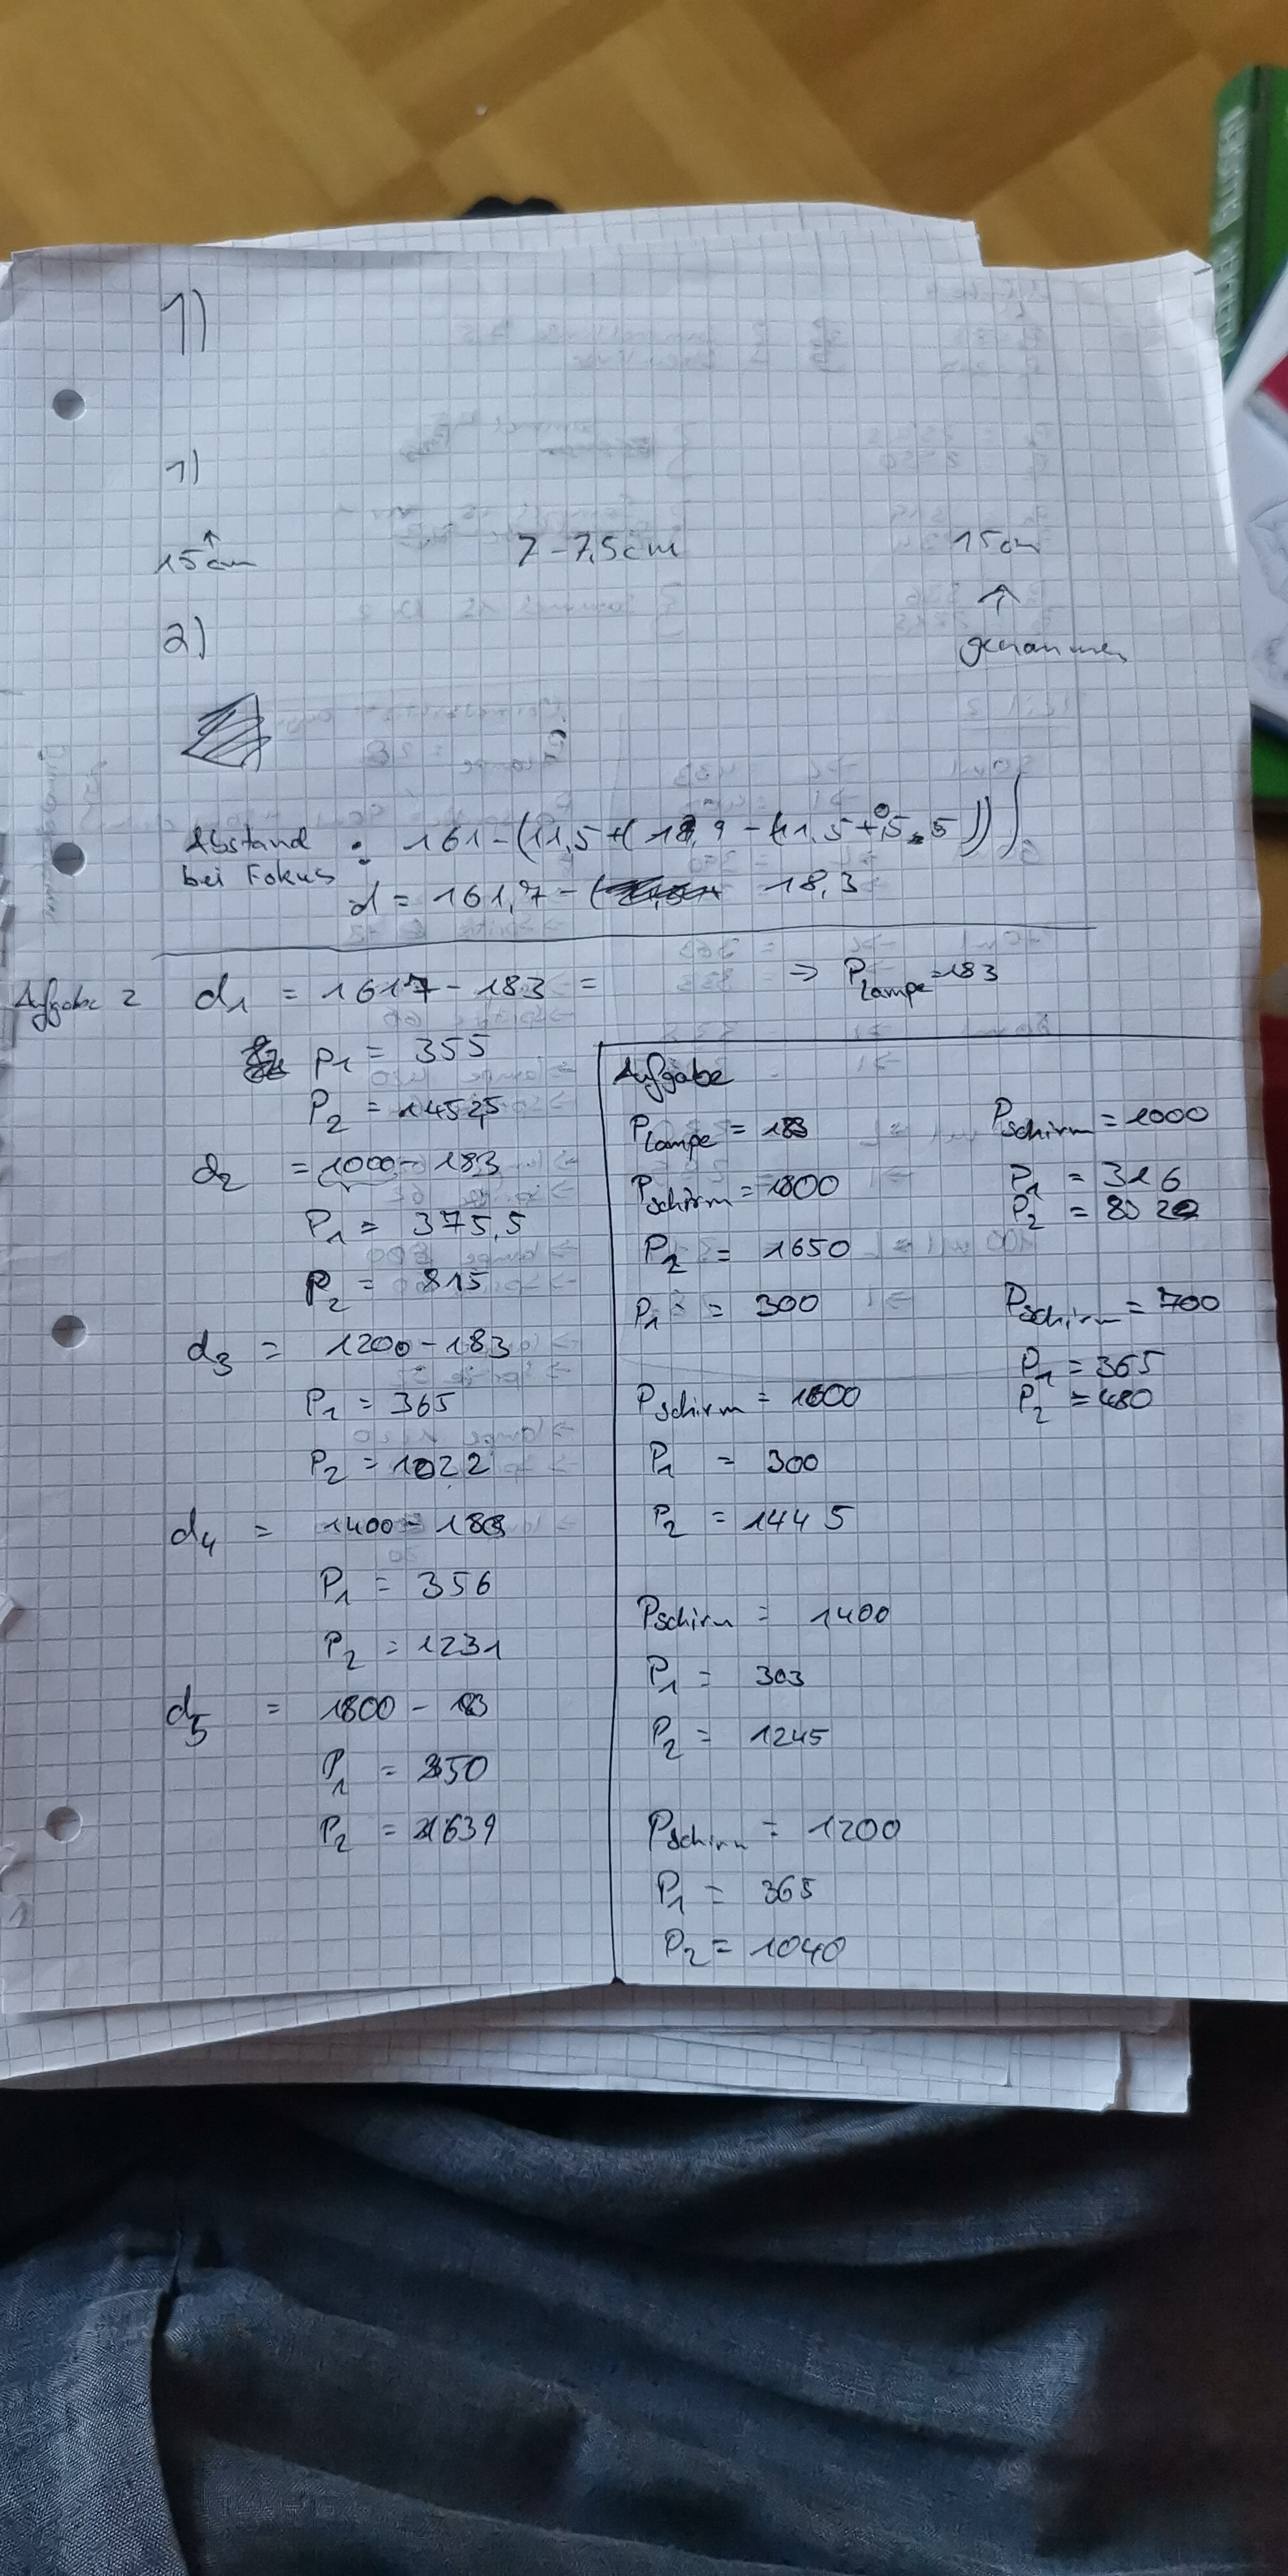 1)
1)
15cm 7-7,5cm 15cm
genommen
2)
Abstand : 161-(11,5+(18,9-(11,5+5,5)))
bei Fokus
d = 161,7 - ( 18,3
Aufgabe 2 d1 = 1617 - 183 = => Plampe = 183
P1 = 355
P2 = 1452,5
d2 = 1000 - 183
P1 = 375,5
P2 = 815
d3 = 1200 - 183
P1 = 365
P2 = 1022
d4 = 1400 - 183
P1 = 356
P2 = 1231
d5 = 1800 - 183
P1 = 350
P2 = 1639
Aufgabe
Plampe = 183
Pschirm = 1800
P2 = 1650
P1 = 300
Pschirm = 1600
P1 = 300
P2 = 1445
Pschirm = 1400
P1 = 303
P2 = 1245
Pschirm = 1200
P1 = 365
P2 = 1040
Pschirm = 1000
P1 = 316
P2 =
Pschirm = 700
P1 = 365
P2 = 480